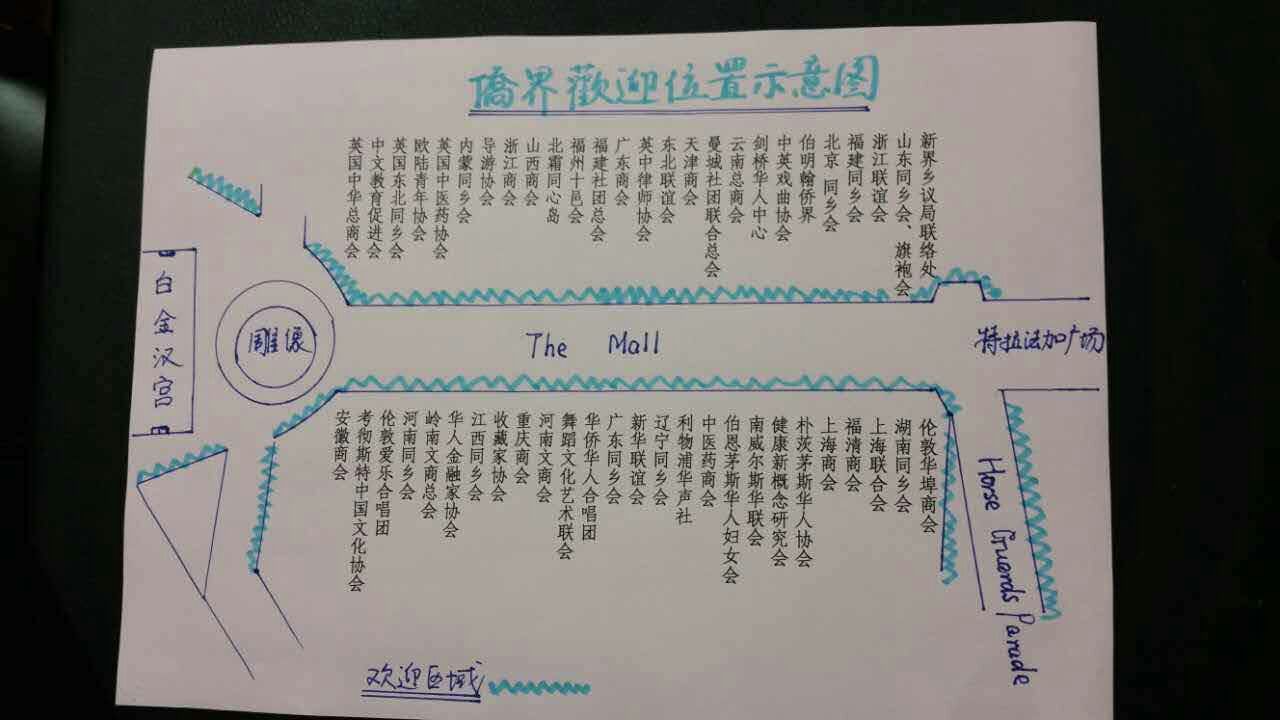 僑界歡迎位置示意图
英国中华总商会
中文教育促进会
英国东北同乡会
欧陆青年协会
英国中医药协会
内蒙同乡会
导游协会
浙江商会
山西商会
北霜同心岛
福州十邑会
福建社团总会
广东商会
英中律师协会
东北联谊会
天津商会
曼城社团联合总会
云南总商会
剑桥华人中心
中英戏曲协会
伯明翰侨界
北京 同乡会
福建同乡会
浙江联谊会
山东同乡会、旗袍会
新界乡议局联络处
白金汉宫
雕像
The Mall
特拉法加广场
安徽商会
考彻斯特中国文化协会
伦敦爱乐合唱团
河南同乡会
岭南文商总会
华人金融家协会
江西同乡会
收藏家协会
重庆商会
河南文商会
舞蹈文化艺术联会
华侨华人合唱团
广东同乡会
新华联谊会
辽宁同乡会
利物浦华声社
中医药商会
伯恩茅斯华人妇女会
南威尔斯华联会
健康新概念研究会
朴茨茅斯华人协会
上海商会
福清商会
上海联合会
湖南同乡会
伦敦华埠商会
Horse Guards Parade
欢迎区域